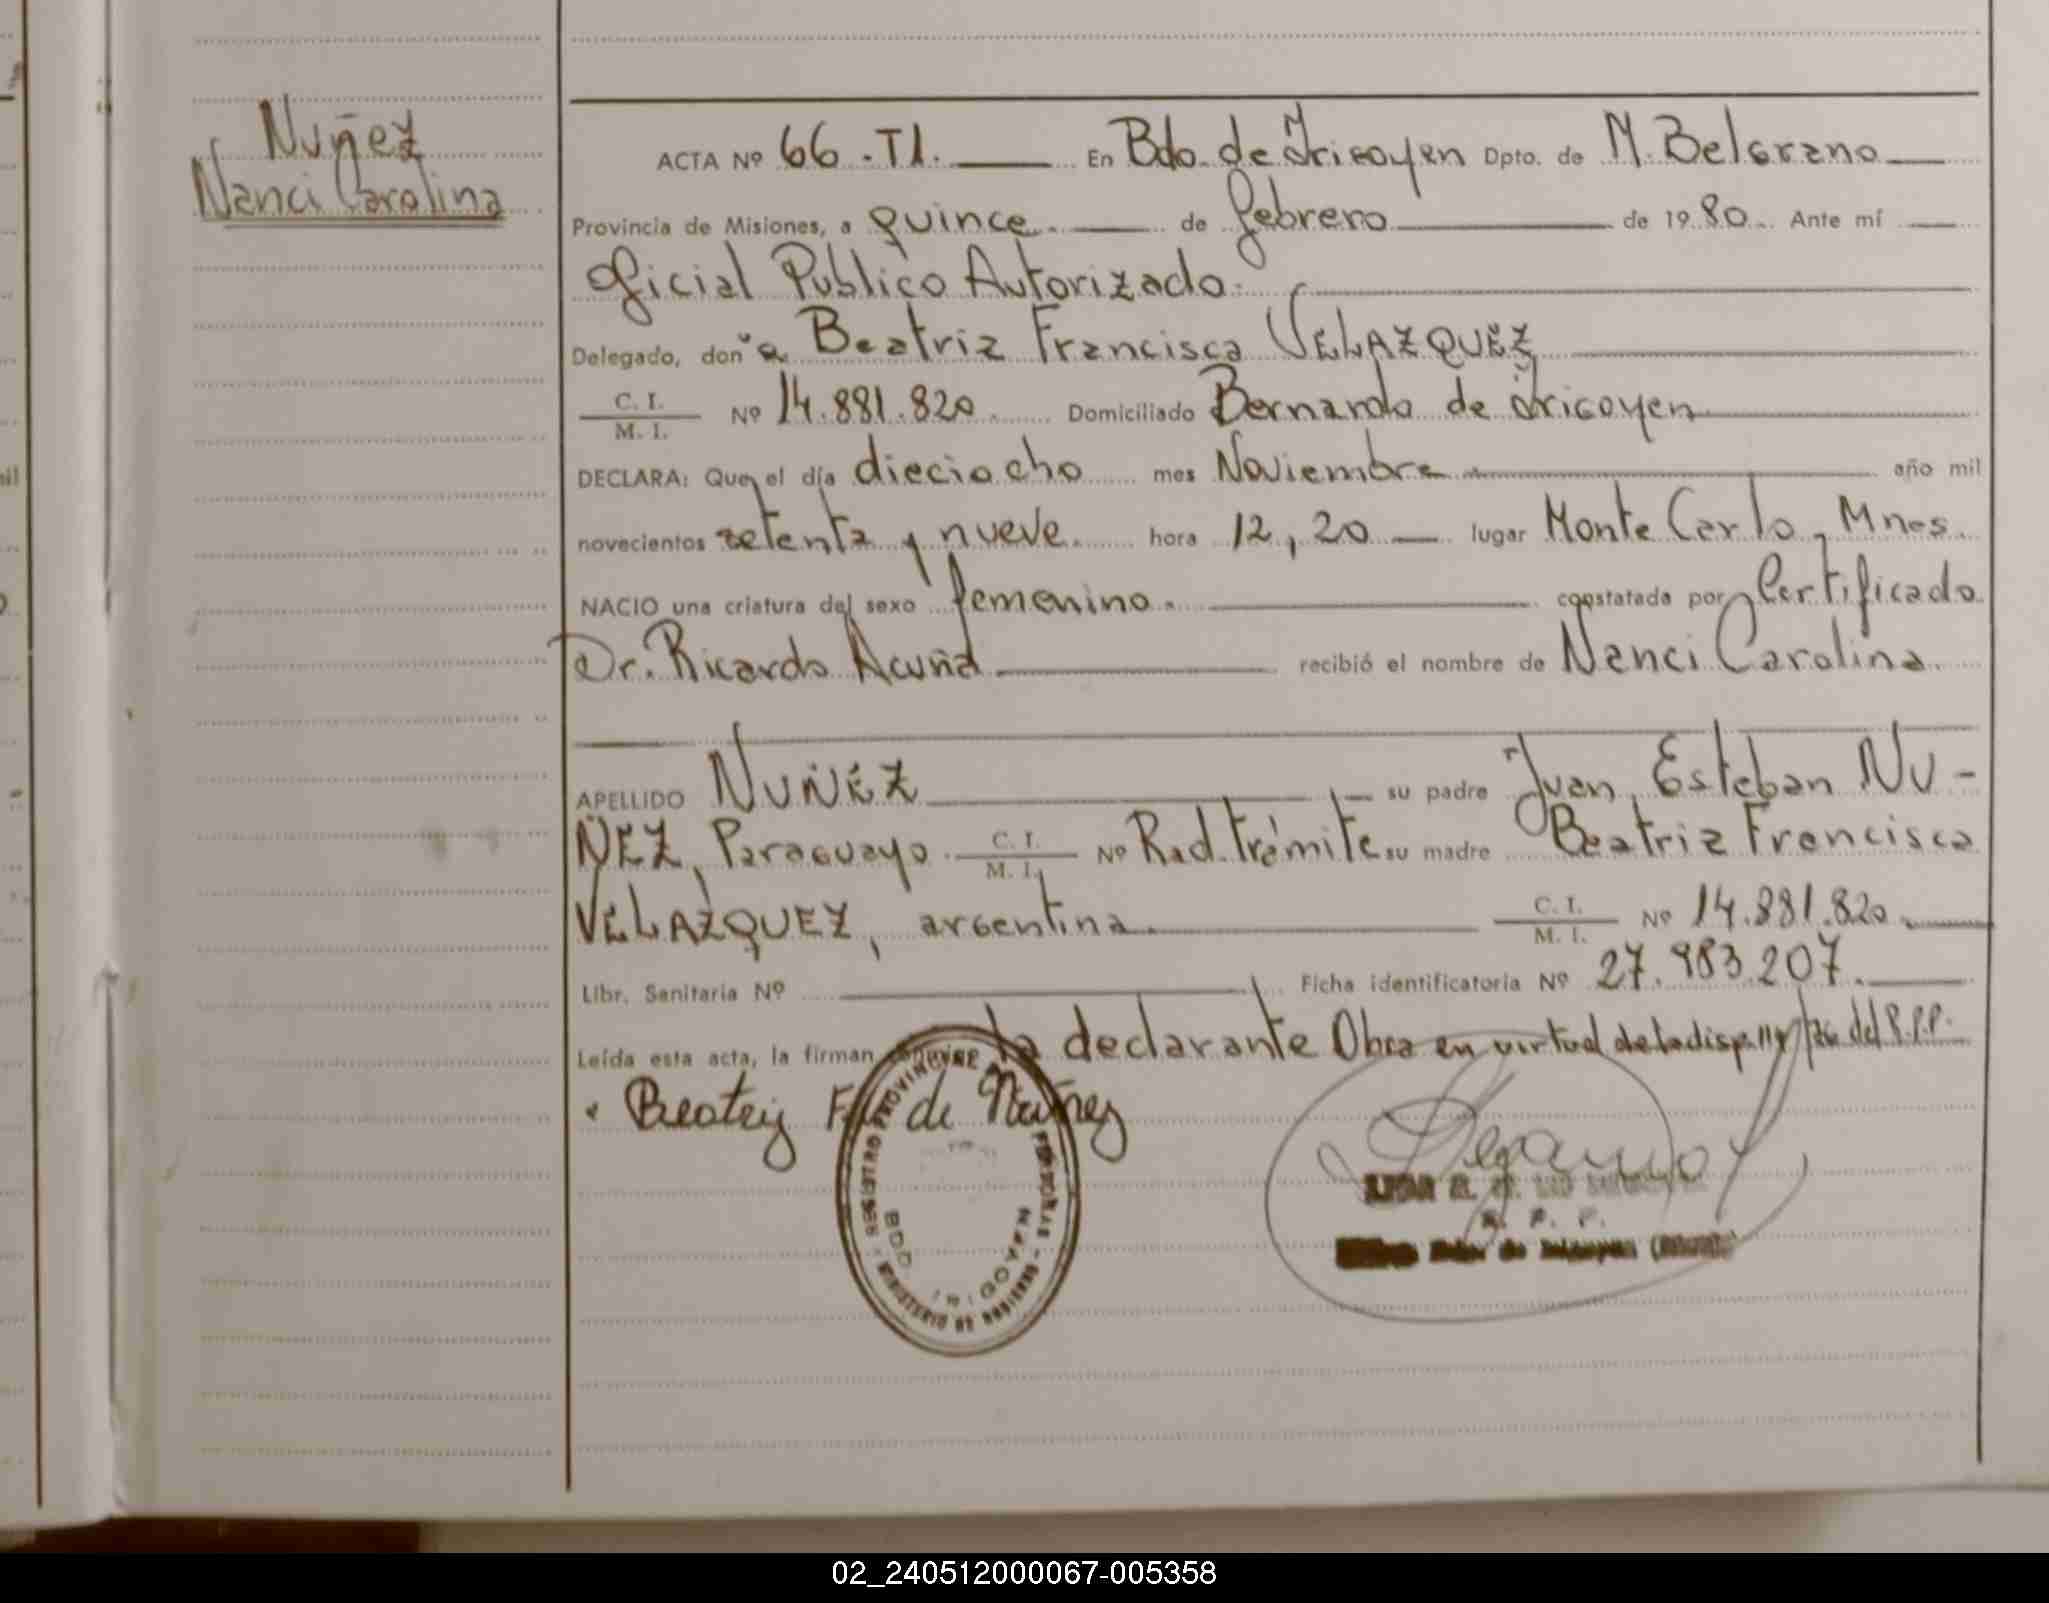 Nuñez
Nanci Carolina
ACTA Nº 66 . T1. En Bdo. de Irigoyen Dpto. de M. Belgrano
Provincia de Misiones, a quince de febrero de 1980. Ante mí
Oficial Público Autorizado.
Delegado, donª Beatriz Francisca VELAZQUEZ
C. I. / M. I. Nº 14.881.820 Domiciliado Bernardo de Irigoyen
DECLARA: Que el día dieciocho mes Noviembre año mil
novecientos setenta y nueve hora 12,20 lugar Monte Carlo, Mnes.
NACIO una criatura del sexo femenino. constatada por Certificado
Dr. Ricardo Acuña recibió el nombre de Nanci Carolina.
APELLIDO NUÑEZ su padre Juan Esteban NU-
ÑEZ, Paraguayo. C. I. / M. I. Nº Rad. trámite su madre Beatriz Francisca
VELAZQUEZ, argentina. C. I. / M. I. Nº 14.881.820
Libr. Sanitaria Nº Ficha identificatoria Nº 27.983.207.
Leída esta acta, la firman la declarante Obra en virtud de la disp. del R.P.P.
Beatriz F. de Nuñez
REGISTRO PROVINCIAL PERSONAS - MINISTERIO DE GOBIERNO
BDO. IRIGOYEN
R. P. P.
Bdo. de Irigoyen
02_240512000067-005358